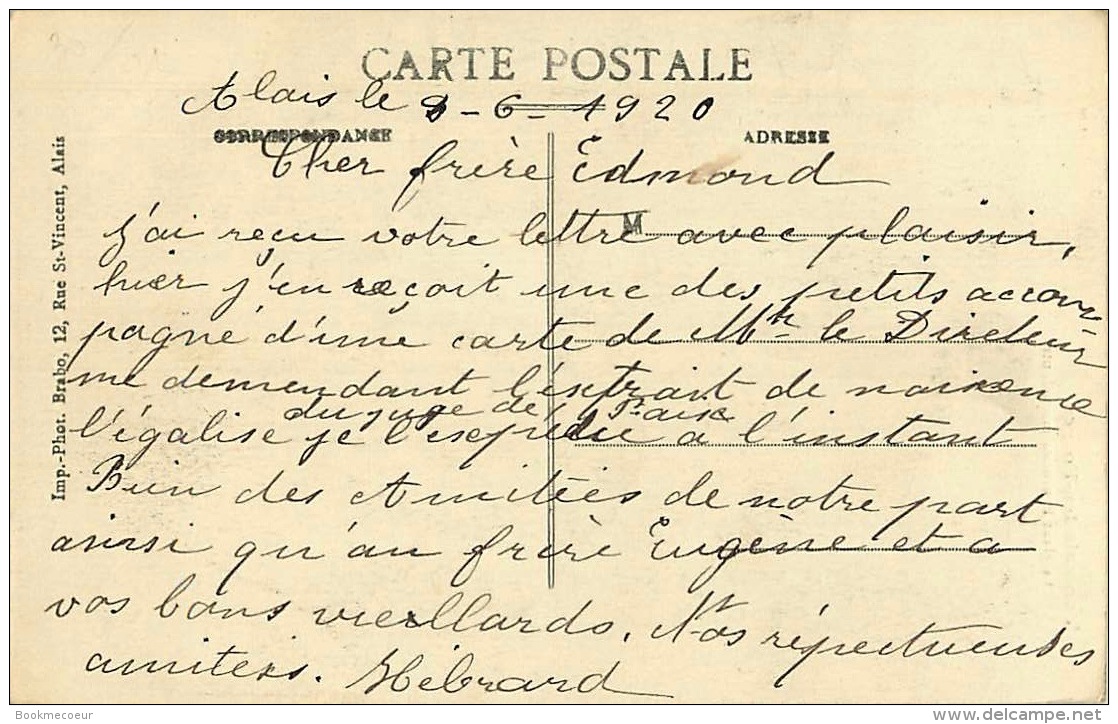 CARTE POSTALE
Alais le 8-6-1920
CORRESPONDANCE
ADRESSE
Cher frère Edmond
M
j'ai reçu votre lettre avec plaisir,
hier j'en reçoit une des petits accom-
pagné d'une carte de Mr le Directeur
me demendant l'éxtrait de naisence
du juge de Paix
l'égalise je l'exepédie à l'instant
Bien des Amitiées de notre part
ainsi qu'au frère Eugène et a
vos bons vieillards. Nos réspectueuses
amitiers. Hébrard
Imp.-Phot. Brabo, 12, Rue St-Vincent, Alais
Bookmecoeur
www.delcampe.net